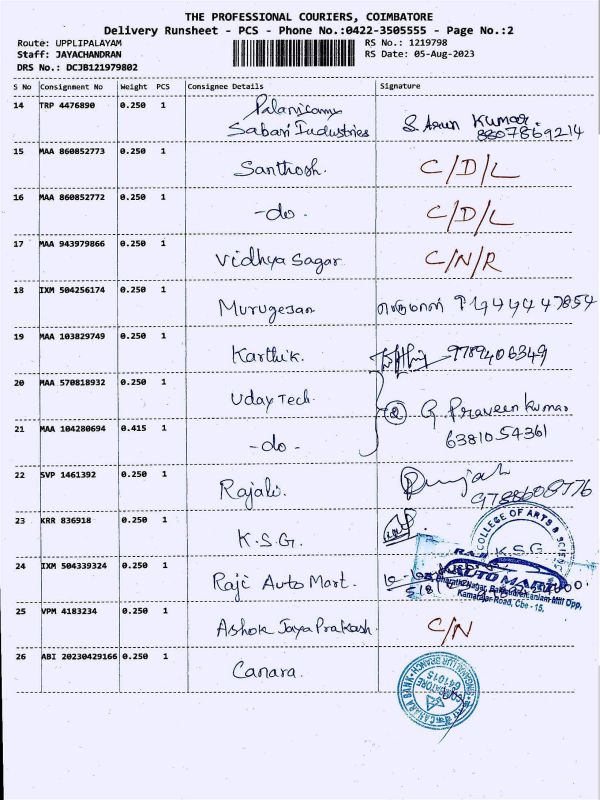 THE PROFESSIONAL COURIERS, COIMBATORE
Delivery Runsheet - PCS - Phone No.:0422-3505555 - Page No.:2
Route: UPPLIPALAYAM RS No.: 1219798
Staff: JAYACHANDRAN RS Date: 05-Aug-2023
DRS No.: DCJB121979802
S No Consignment No Weight PCS Consignee Details Signature
14 TRP 4476890 0.250 1 Palanisamy
Sabari Industries S. Arun Kumar. 8807869214
15 MAA 860852773 0.250 1 Santhosh. C/D/L
16 MAA 860852772 0.250 1 -do- C/D/L
17 MAA 943979866 0.250 1 Vidhya Sagar C/N/R
18 IXM 504256174 0.250 1 Murugesan
19 MAA 103829749 0.250 1 Karthik. 9789406349
20 MAA 570818932 0.250 1 Uday Tech. ② G Praveen Kumar
21 MAA 104280694 0.415 1 -do- 6381054361
22 SVP 1461392 0.250 1 Rajali.
23 KRR 836918 0.250 1 K.S.G. COLLEGE OF ARTS & K.S.G
24 IXM 504339324 0.250 1 Raji Auto Mart. RAJI AUTO MART
Kamarajar Road, Cbe - 15.
25 VPM 4183234 0.250 1 Ashok Jaya Prakash C/N
26 ABI 20230429166 0.250 1 Canara. CANARA BANK SINGANALLUR BRANCH COIMBATORE 641015